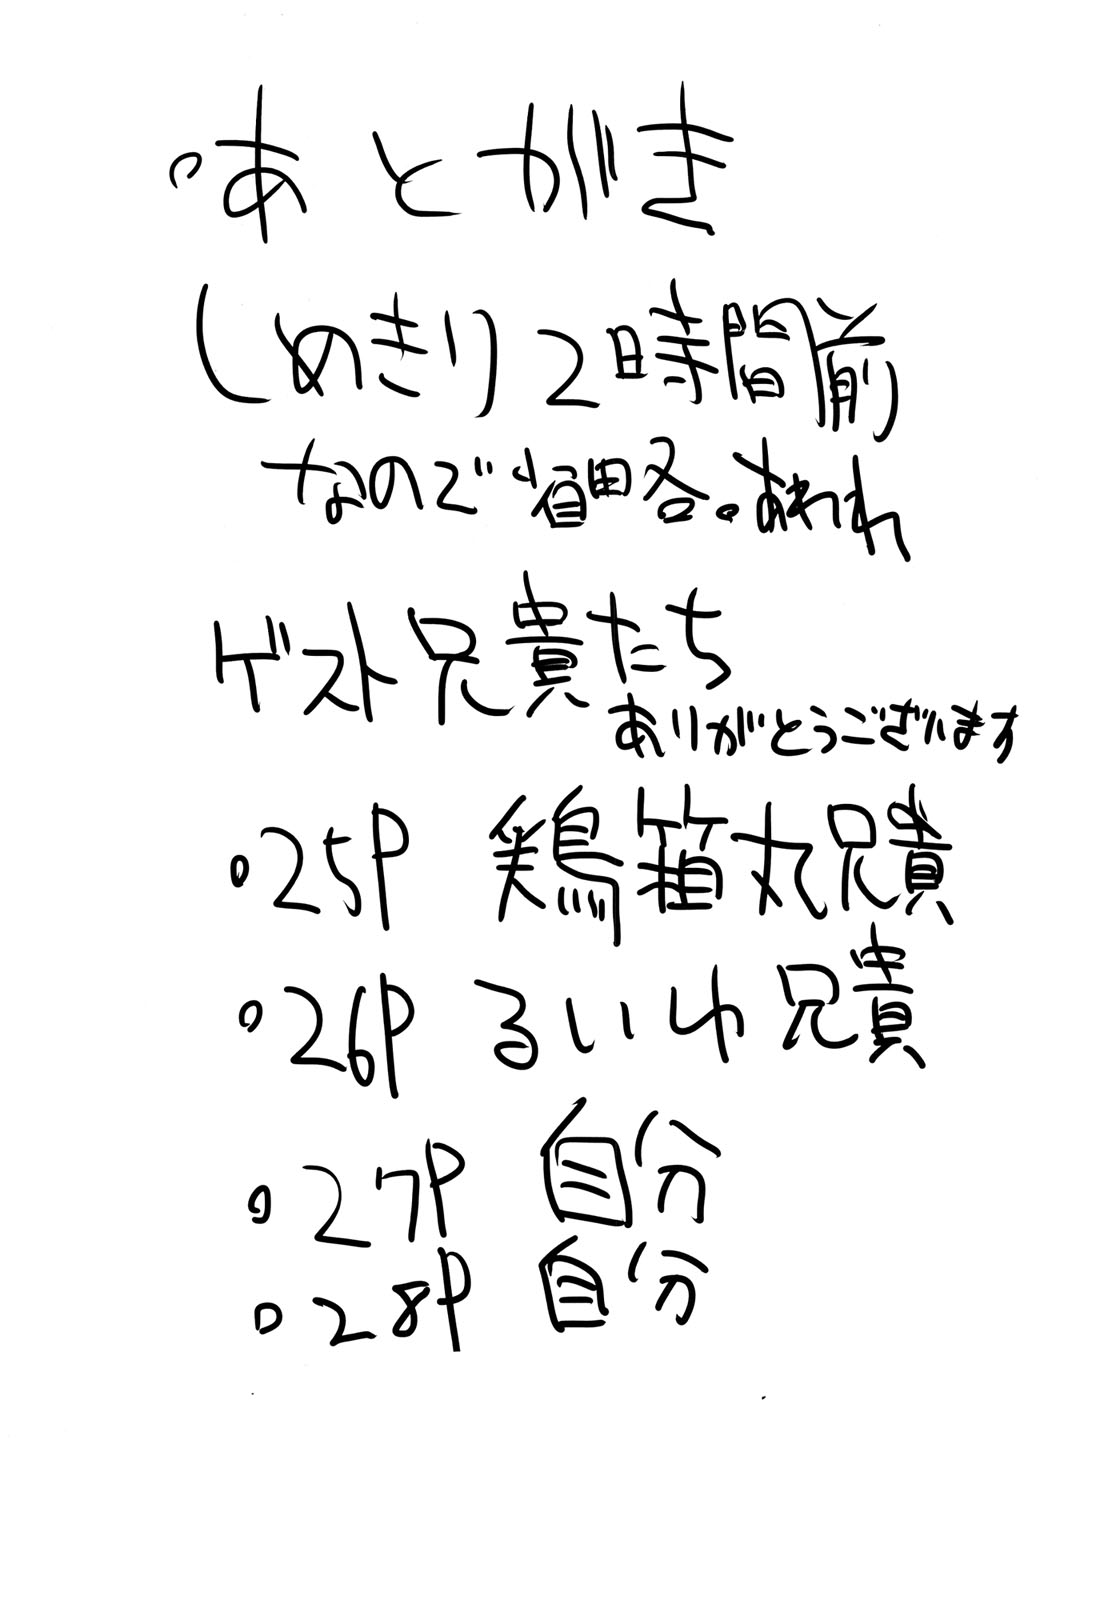 。あとがき
しめきり2時間前
なので省略。あわれ
ゲスト兄貴たち
ありがとうございます
。25P 鶏箱丸兄貴
。26P るいわ兄貴
。27P 自分
。28P 自分